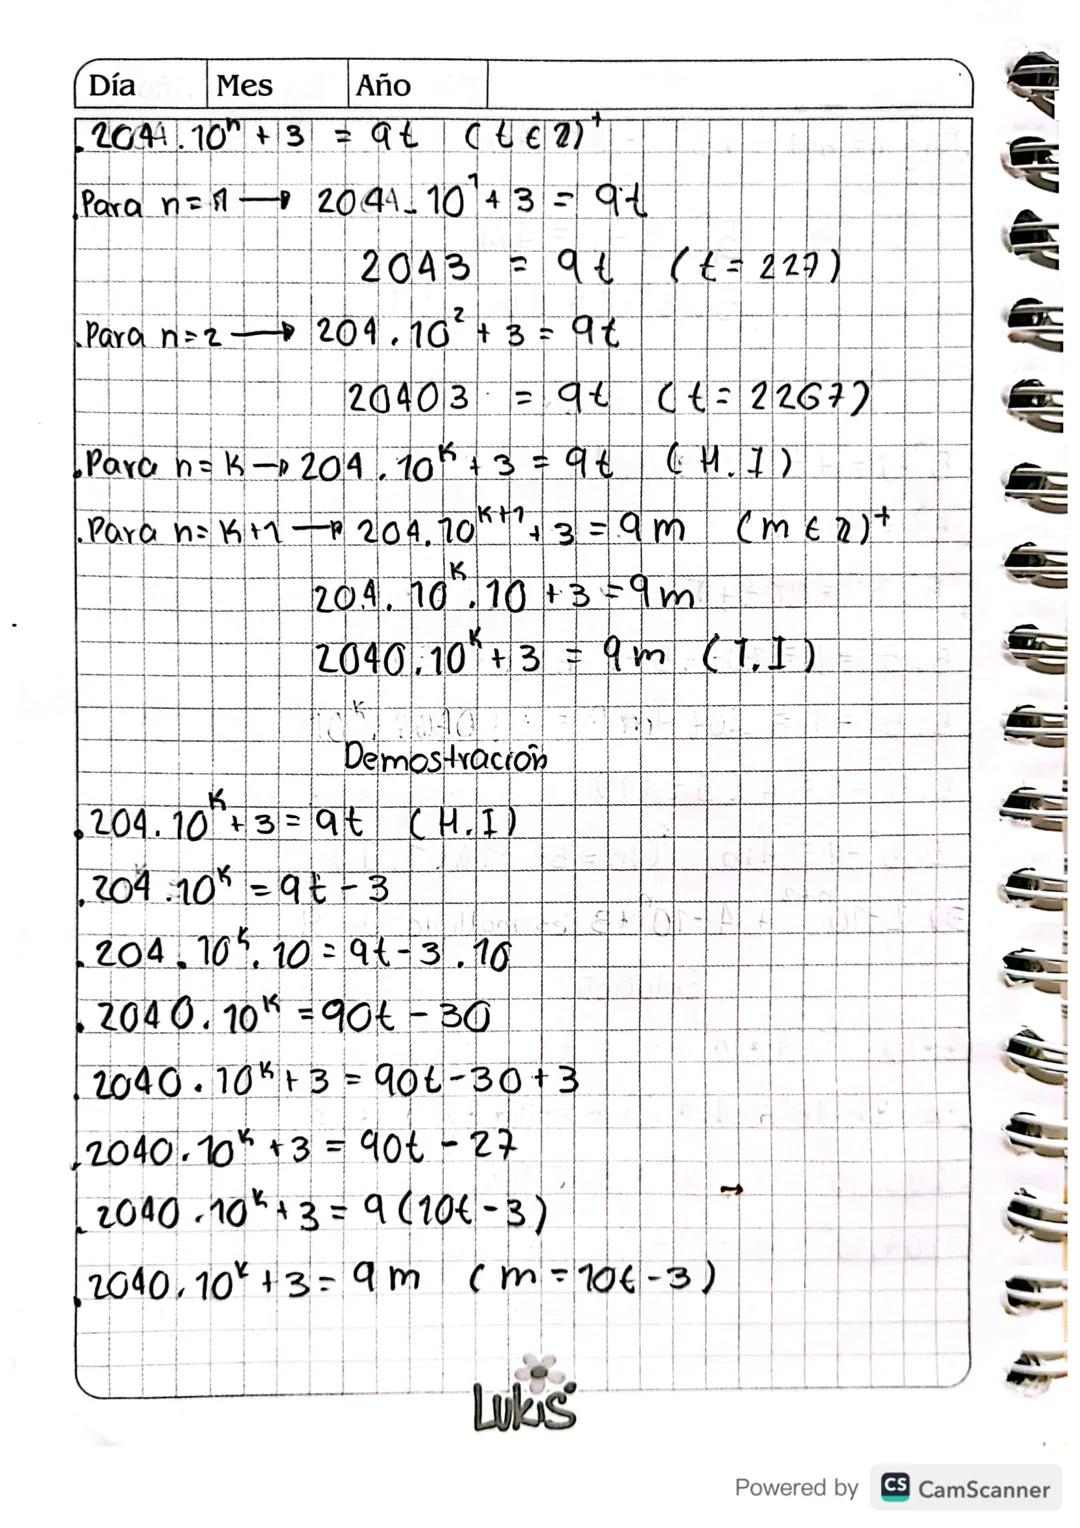 Día Mes Año
. 204.10ⁿ + 3 = 9t (t ∈ Z)⁺
.Para n=1 → 204.10¹ + 3 = 9t
2043 = 9t (t = 227)
.Para n=2 → 204.10² + 3 = 9t
20403 = 9t (t = 2267)
.Para n=K → 204.10ᴷ + 3 = 9t (H.I)
.Para n=K+1 → 204.10ᴷ⁺¹ + 3 = 9m (m ∈ Z)⁺
204.10ᴷ.10 + 3 = 9m
2040.10ᴷ + 3 = 9m (T.I)
Demostración
.204.10ᴷ + 3 = 9t (H.I)
.204.10ᴷ = 9t - 3
.204.10ᴷ.10 = 9t - 3.10
.2040.10ᴷ = 90t - 30
.2040.10ᴷ + 3 = 90t - 30 + 3
.2040.10ᴷ + 3 = 90t - 27
.2040.10ᴷ + 3 = 9(10t - 3)
.2040.10ᴷ + 3 = 9m (m = 10t - 3)
Lukis
Powered by CS CamScanner